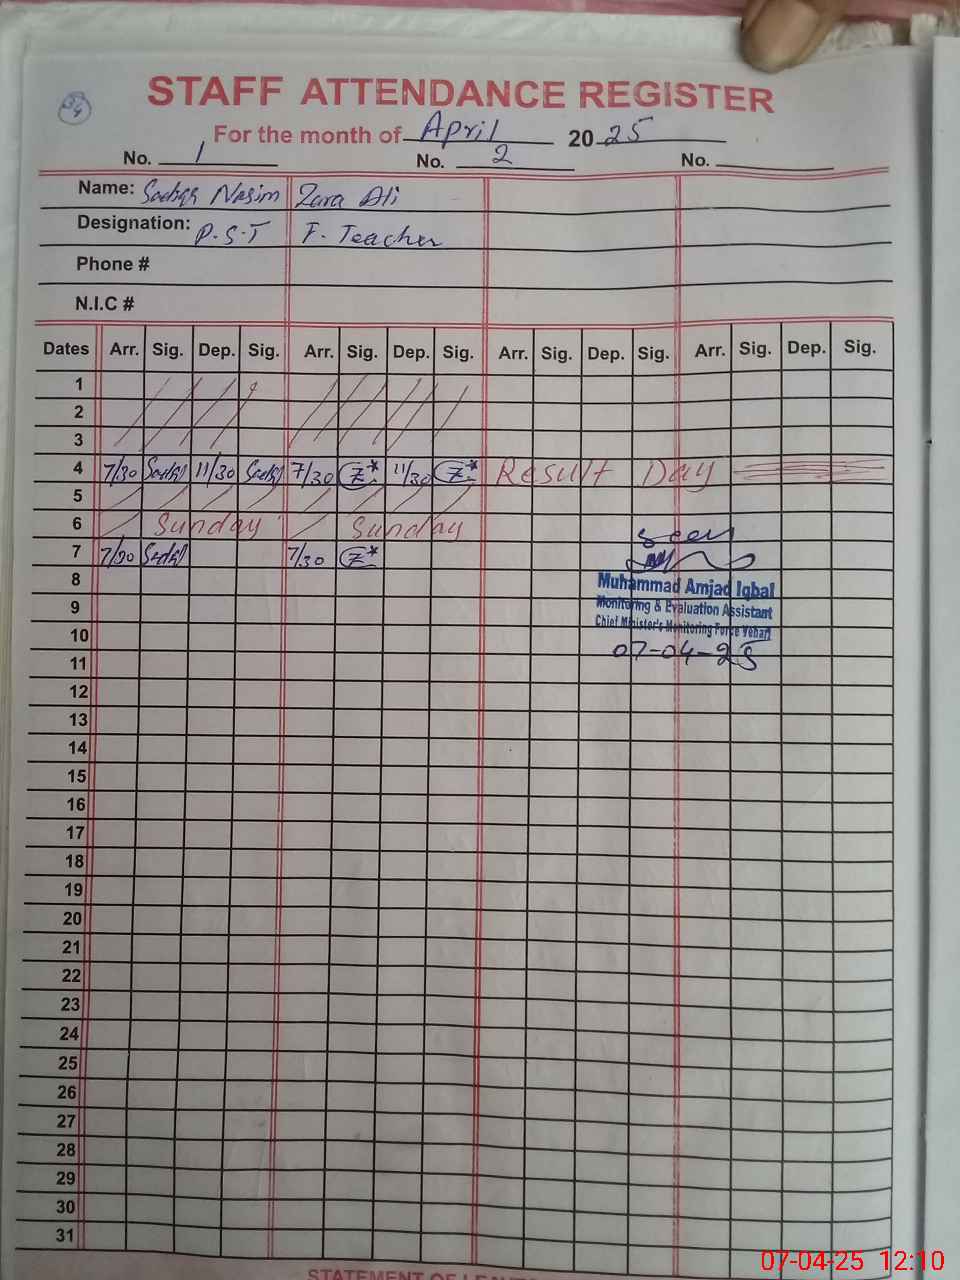 34
STAFF ATTENDANCE REGISTER
For the month of April 2025
No. 1 No. 2 No.
Name: Nasim Zara Ali
Designation: P.S.T F. Teacher
Phone #
N.I.C #
Dates Arr. Sig. Dep. Sig. Arr. Sig. Dep. Sig. Arr. Sig. Dep. Sig. Arr. Sig. Dep. Sig.
1
2
3
4 7/30 11/30 7/30 Z 11/30 Z Result Day
5
6 Sunday Sunday
7 7/30 7/30 Z
Seen
8
Muhammad Amjad Iqbal
9
Monitoring & Evaluation Assistant
Chief Minister's Monitoring Force Vehari
10
07-04-25
11
12
13
14
15
16
17
18
19
20
21
22
23
24
25
26
27
28
29
30
31
07-04-25 12:10